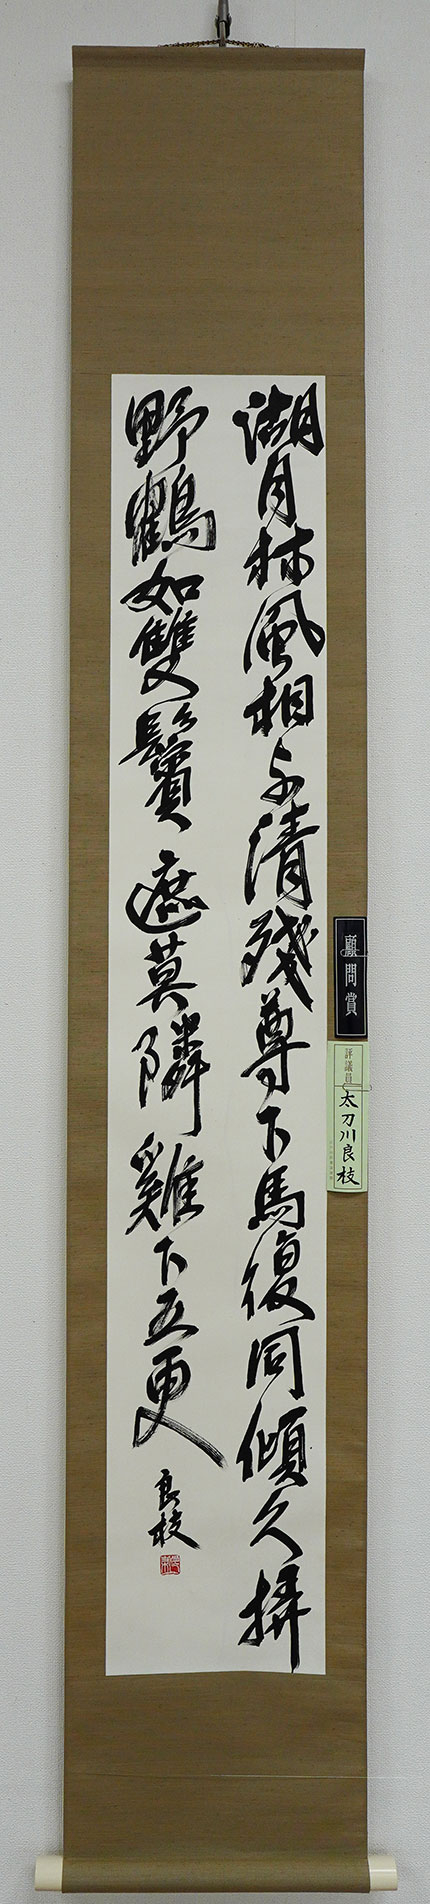 湖月林風相与清残尊下馬復同傾久捹
野鶴如雙鬢遮莫隣雞下五更
良枝
顧問賞
評議員
太刀川良枝